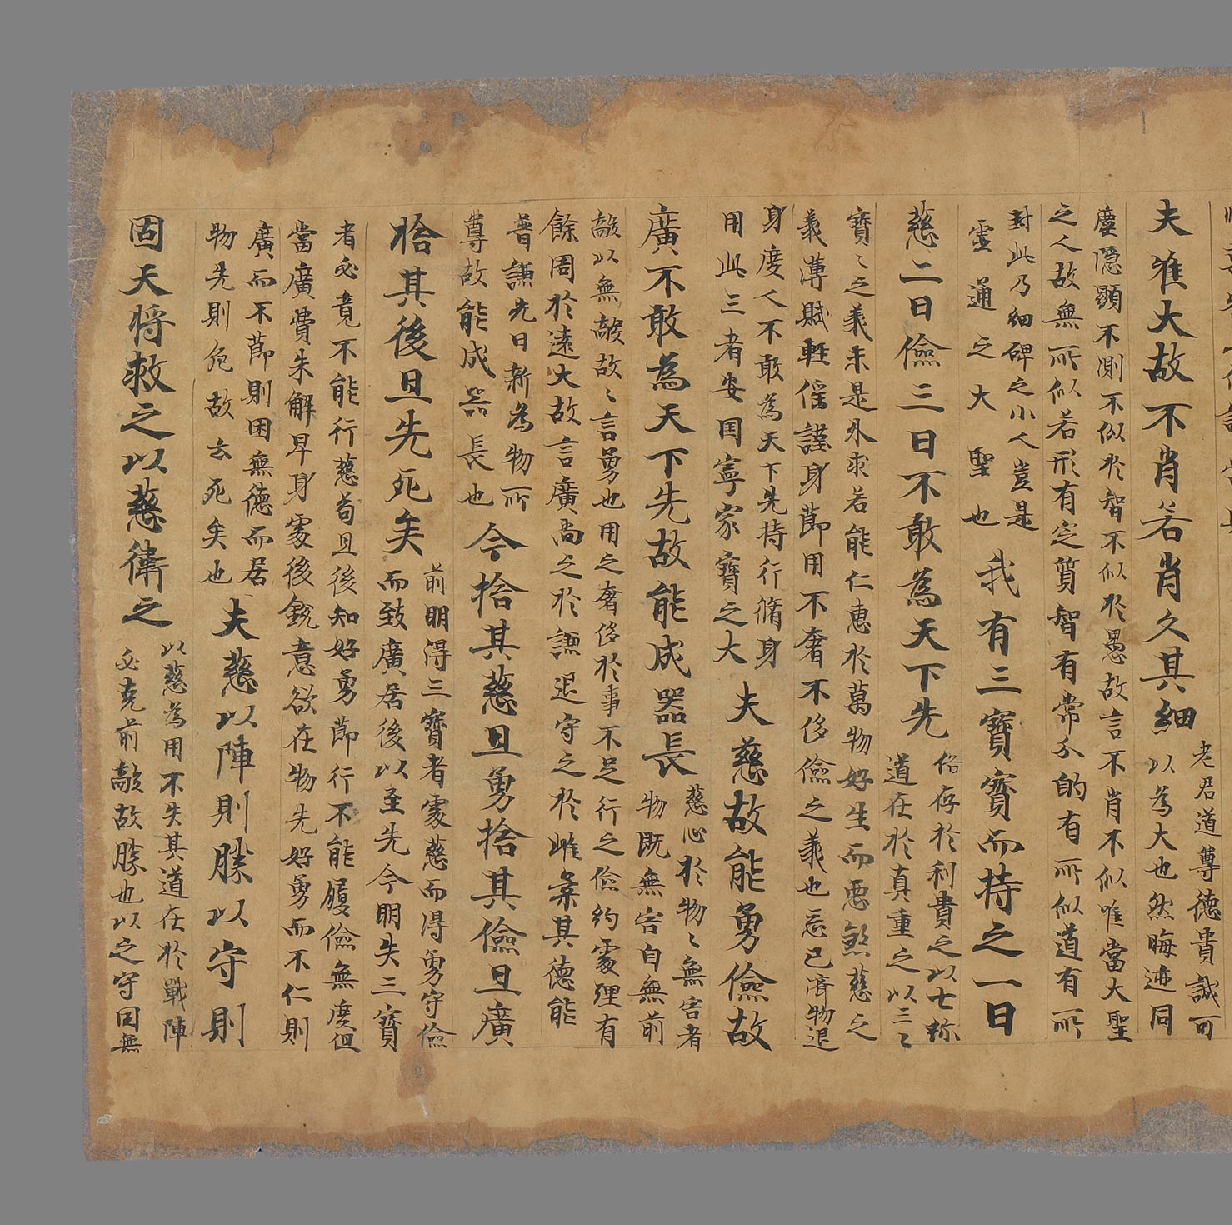 夫唯大故不肖若肖久其細
老君道尊德貴誠可
以為大也然晦迹同
塵隱顯不測不似於智不似於愚故言不肖不似唯當大聖
之人故無所似若形有定質智有常分的有所似道有所
對此乃細碑之小人豈是
靈通之大聖也
我有三寶寶而持之一曰
慈二曰儉三曰不敢為天下先
俗存於利貴之以七珎
道在於真重之以三〻
寶〻之義未是外求若能仁惠於萬物好生而惡煞慈之
義薄賦輕徭謹身節用不奢不侈儉之義也忘己濟物退
身度人不敢為天下先持行脩身
用此三者安国寧家寶之大
夫慈故能勇儉故
廣不敢為天下先故能成器長
慈心於物〻無害者
物既無害自無前
敵以無敵故〻言勇也用之奢侈於事不足行之儉約處理有
餘周於遠大故言廣尚之於謙退守之於雌柔其德能
普謙先日新為物所
尊故能成器長也
今捨其慈且勇捨其儉且廣
捨其後且先死矣
前明得三寶者處慈而得勇守儉
而致廣居後以至先今明失三寶
者必竟不能行慈苟且後知好勇節行不能履儉無度但
當廣費未解卑身處後銳意欲在物先好勇而不仁則
廣而不節則困無德而居
物先則危故去死矣也
夫慈以陣則勝以守則
固天將救之以慈衛之
以慈為用不失其道在於戰陣
必克前敵故勝也以之守国無